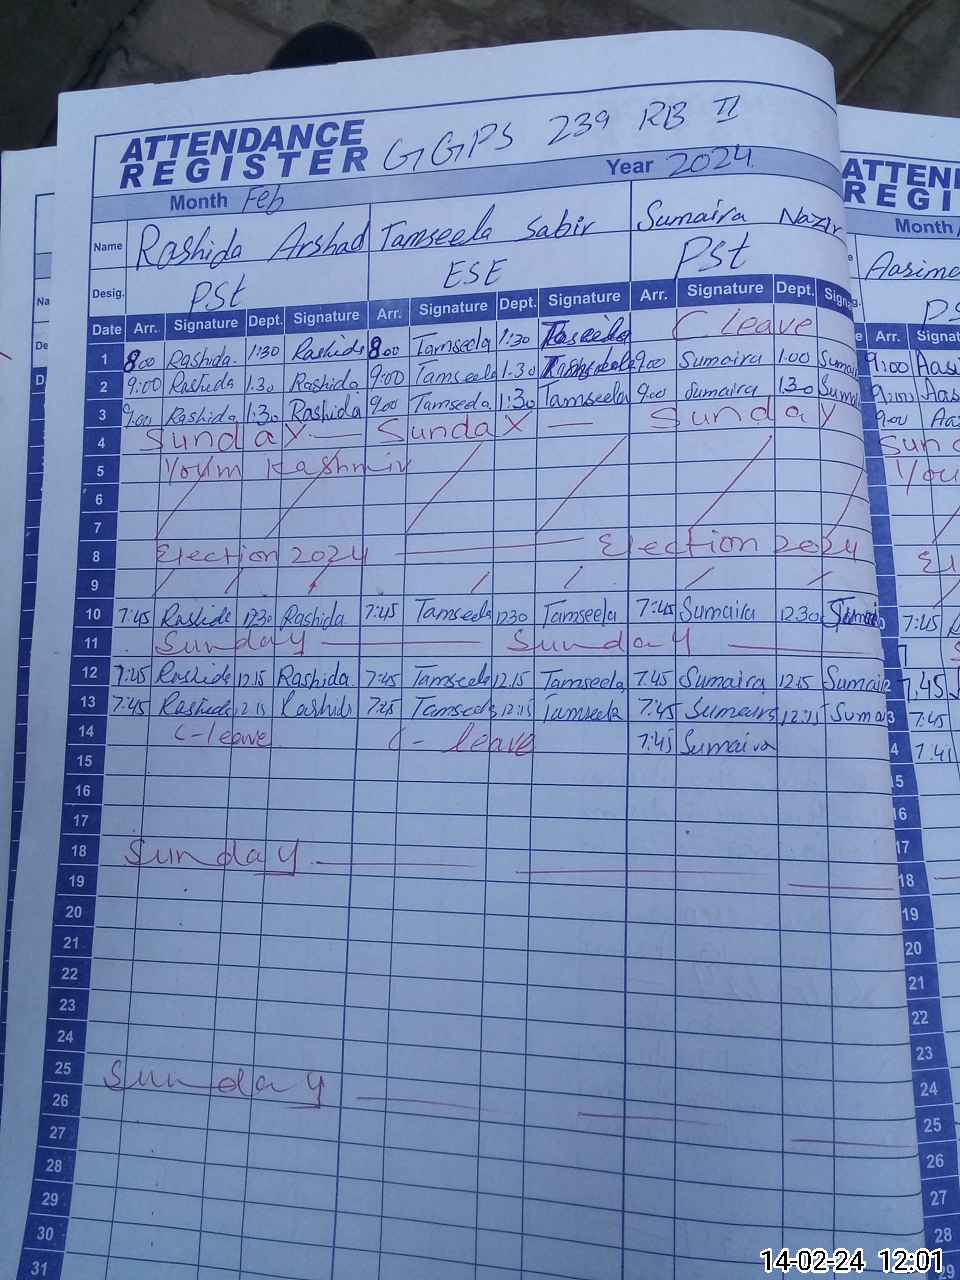 ATTENDANCE REGISTER GGPS 239 RB II
Month Feb Year 2024
Name Rashida Arshad Tamseela Sabir Sumaira Nazir
Desig. PSt ESE PSt
Date Arr. Signature Dept. Signature Arr. Signature Dept. Signature Arr. Signature Dept.
1 8:00 Rashida 1:30 Rashida 8:00 Tamseela 1:30 Taseela C Leave
2 9:00 Rashida 1.30 Rashida 9:00 Tamseela 1.30 9:00 Sumaira 1.00
3 9:00 Rashida 1:30 Rashida 9:00 Tamseela 1:30 Tamseela 9:00 Sumaira 1 30
4 Sunday Sunday Sunday
5 Youm Kashmir
6
7
8 Election 2024 Election 2024
9
10 7:45 Rashida 12:30 Rashida 7:45 Tamseela 12:30 Tamseela 7:45 Sumaira 12:30
11 Sunday Sunday
12 7:45 Rashida 12.15 Rashida 7:45 Tamseela 12.15 Tamseela 7.45 Sumaira 12.15 Sumaira
13 7:45 Rashida 12:15 Rashida 7:45 Tamseela 12:15 Tamseela 7:45 Sumaira 12:15
14 C-leave C-leave 7:45 Sumaira
15
16
17
18 Sunday
19
20
21
22
23
24
25 Sunday
26
27
28
29
30
31
ATTEN
REGI
Month
Arr.
7:45
7.45
7:45
7.45
15
16
17
18
19
20
21
22
23
24
25
26
27
28
29
14-02-24 12:01